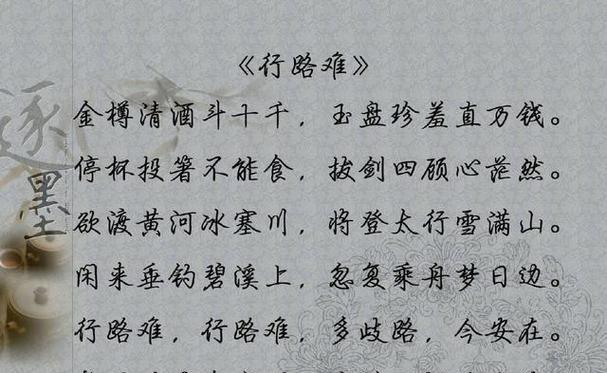 《行路难》
金樽清酒斗十千，玉盘珍羞直万钱。
停杯投箸不能食，拔剑四顾心茫然。
欲渡黄河冰塞川，将登太行雪满山。
闲来垂钓碧溪上，忽复乘舟梦日边。
行路难，行路难，多歧路，今安在。
逐墨